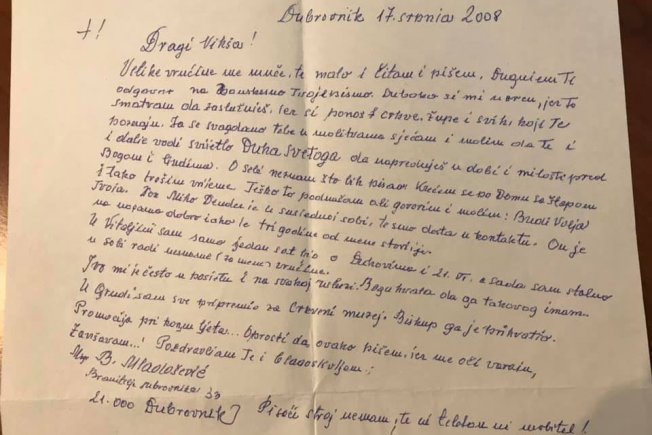 Dubrovnik 17. srpnia 2008
+!
Dragi Vikša!
Velike vrućine me muče, te malo i čitam i pišem. Dugujem Ti
odgovor na Tvoje pismo. Duboko si mi u srcu, jer to
smatram da zaslužuješ, jer si ponos crkve, župe i svih, koji Te
poznaju. Ja se svagdano tebe u molitvama sjećam i molim da Te i
i dalje vodi svijetlo Duha Svetoga da napreduješ u dobi i milosti pred
Bogom i ljudima. O sebi nemam što lih pisao. Krećem se po Domu sa štapom
i tako trošim vrijeme. Teško to podnašam ali govorim i molim: Budi volja
Tvoja. Don Miko je u susjednoj sobi, te smo dosta u kontaktu. On je
na nogama dobro iako le tri godine od mene stariji.
U Vitaljini sam samo jedan sat bio o i 21. VI. a sada sam stalno
u sobi radi nesnosne (za mene) vrućine.
Ivo mi je često u posjetu i na svakoj usluzi. Bogu hvala da ga takovog imam.
U Grudi sam sve pripremio za Crkveni muzej. Biskup ga je prihvatio.
Promocija pri koncu ljeta... Oprosti da ovako pišem, jer me oči varaju,
Završavam...! Pozdravljam Te i blagoslivljem;
Msgr B. Mladošević
Branitelja Dubrovnika 33
21.000 Dubrovnik] Pisaći stroj nemam, te ni telefon ni mobitel!